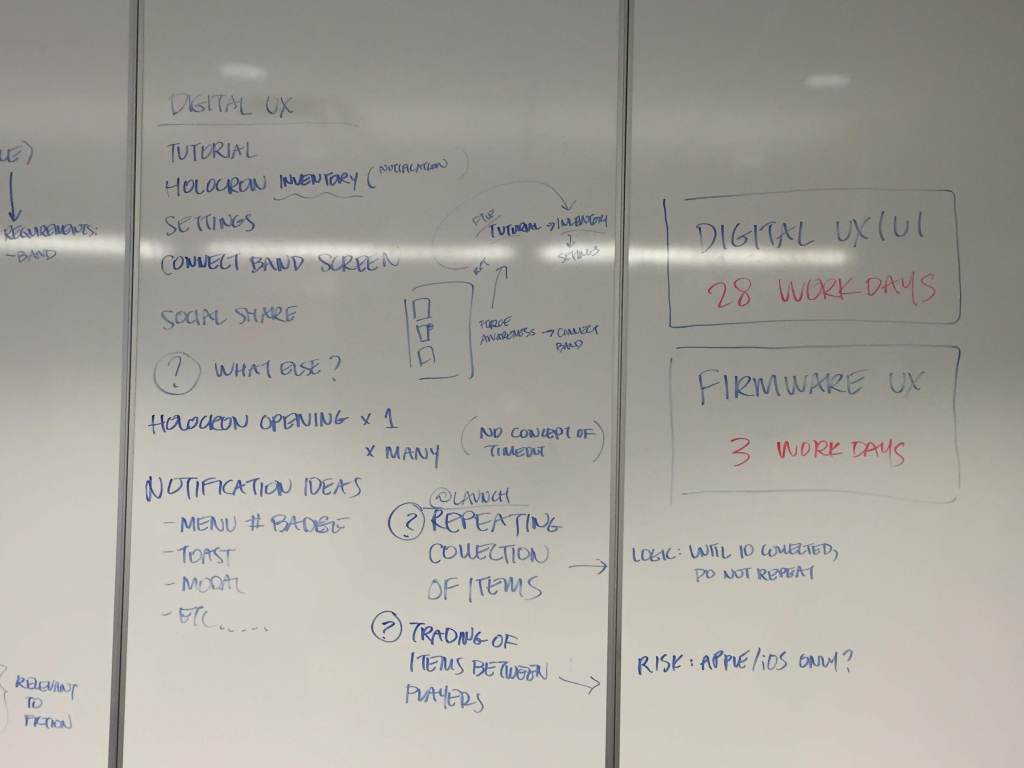 REQUIREMENTS:
- BAND
RELEVANT
TO
FICTION
DIGITAL UX
TUTORIAL
HOLOCRON INVENTORY (NOTIFICATION)
SETTINGS
CONNECT BAND SCREEN
SOCIAL SHARE
? WHAT ELSE?
TUTORIAL → INVENTORY
↓
SETTINGS
FORCE
AWARENESS → CONNECT
BAND
HOLOCRON OPENING x 1
x MANY (NO CONCEPT OF
TIMEOUT)
NOTIFICATION IDEAS
- MENU # BADGE
- TOAST
- MODAL
- ETC.....
@LAUNCH
? REPEATING
COLLECTION
OF ITEMS →
? TRADING OF
ITEMS BETWEEN
PLAYERS →
DIGITAL UX/UI
28 WORK DAYS
FIRMWARE UX
3 WORK DAYS
LOGIC: UNTIL 10 COLLECTED,
DO NOT REPEAT
RISK: APPLE/iOS ONLY?